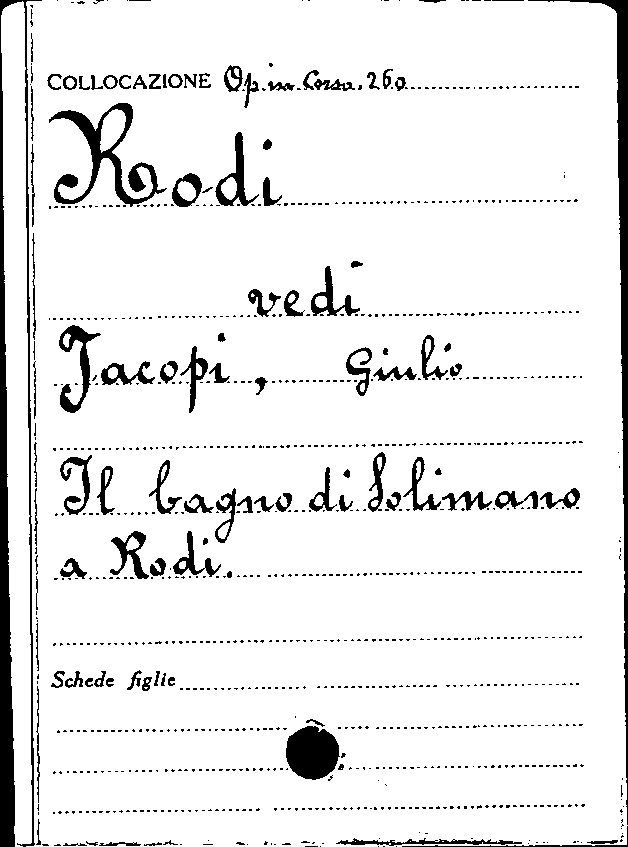 COLLOCAZIONE Op. in Corso. 260
Rodi
vedi
Jacopi, Giulio
Il bagno di Solimano
a Rodi.
Schede figlie